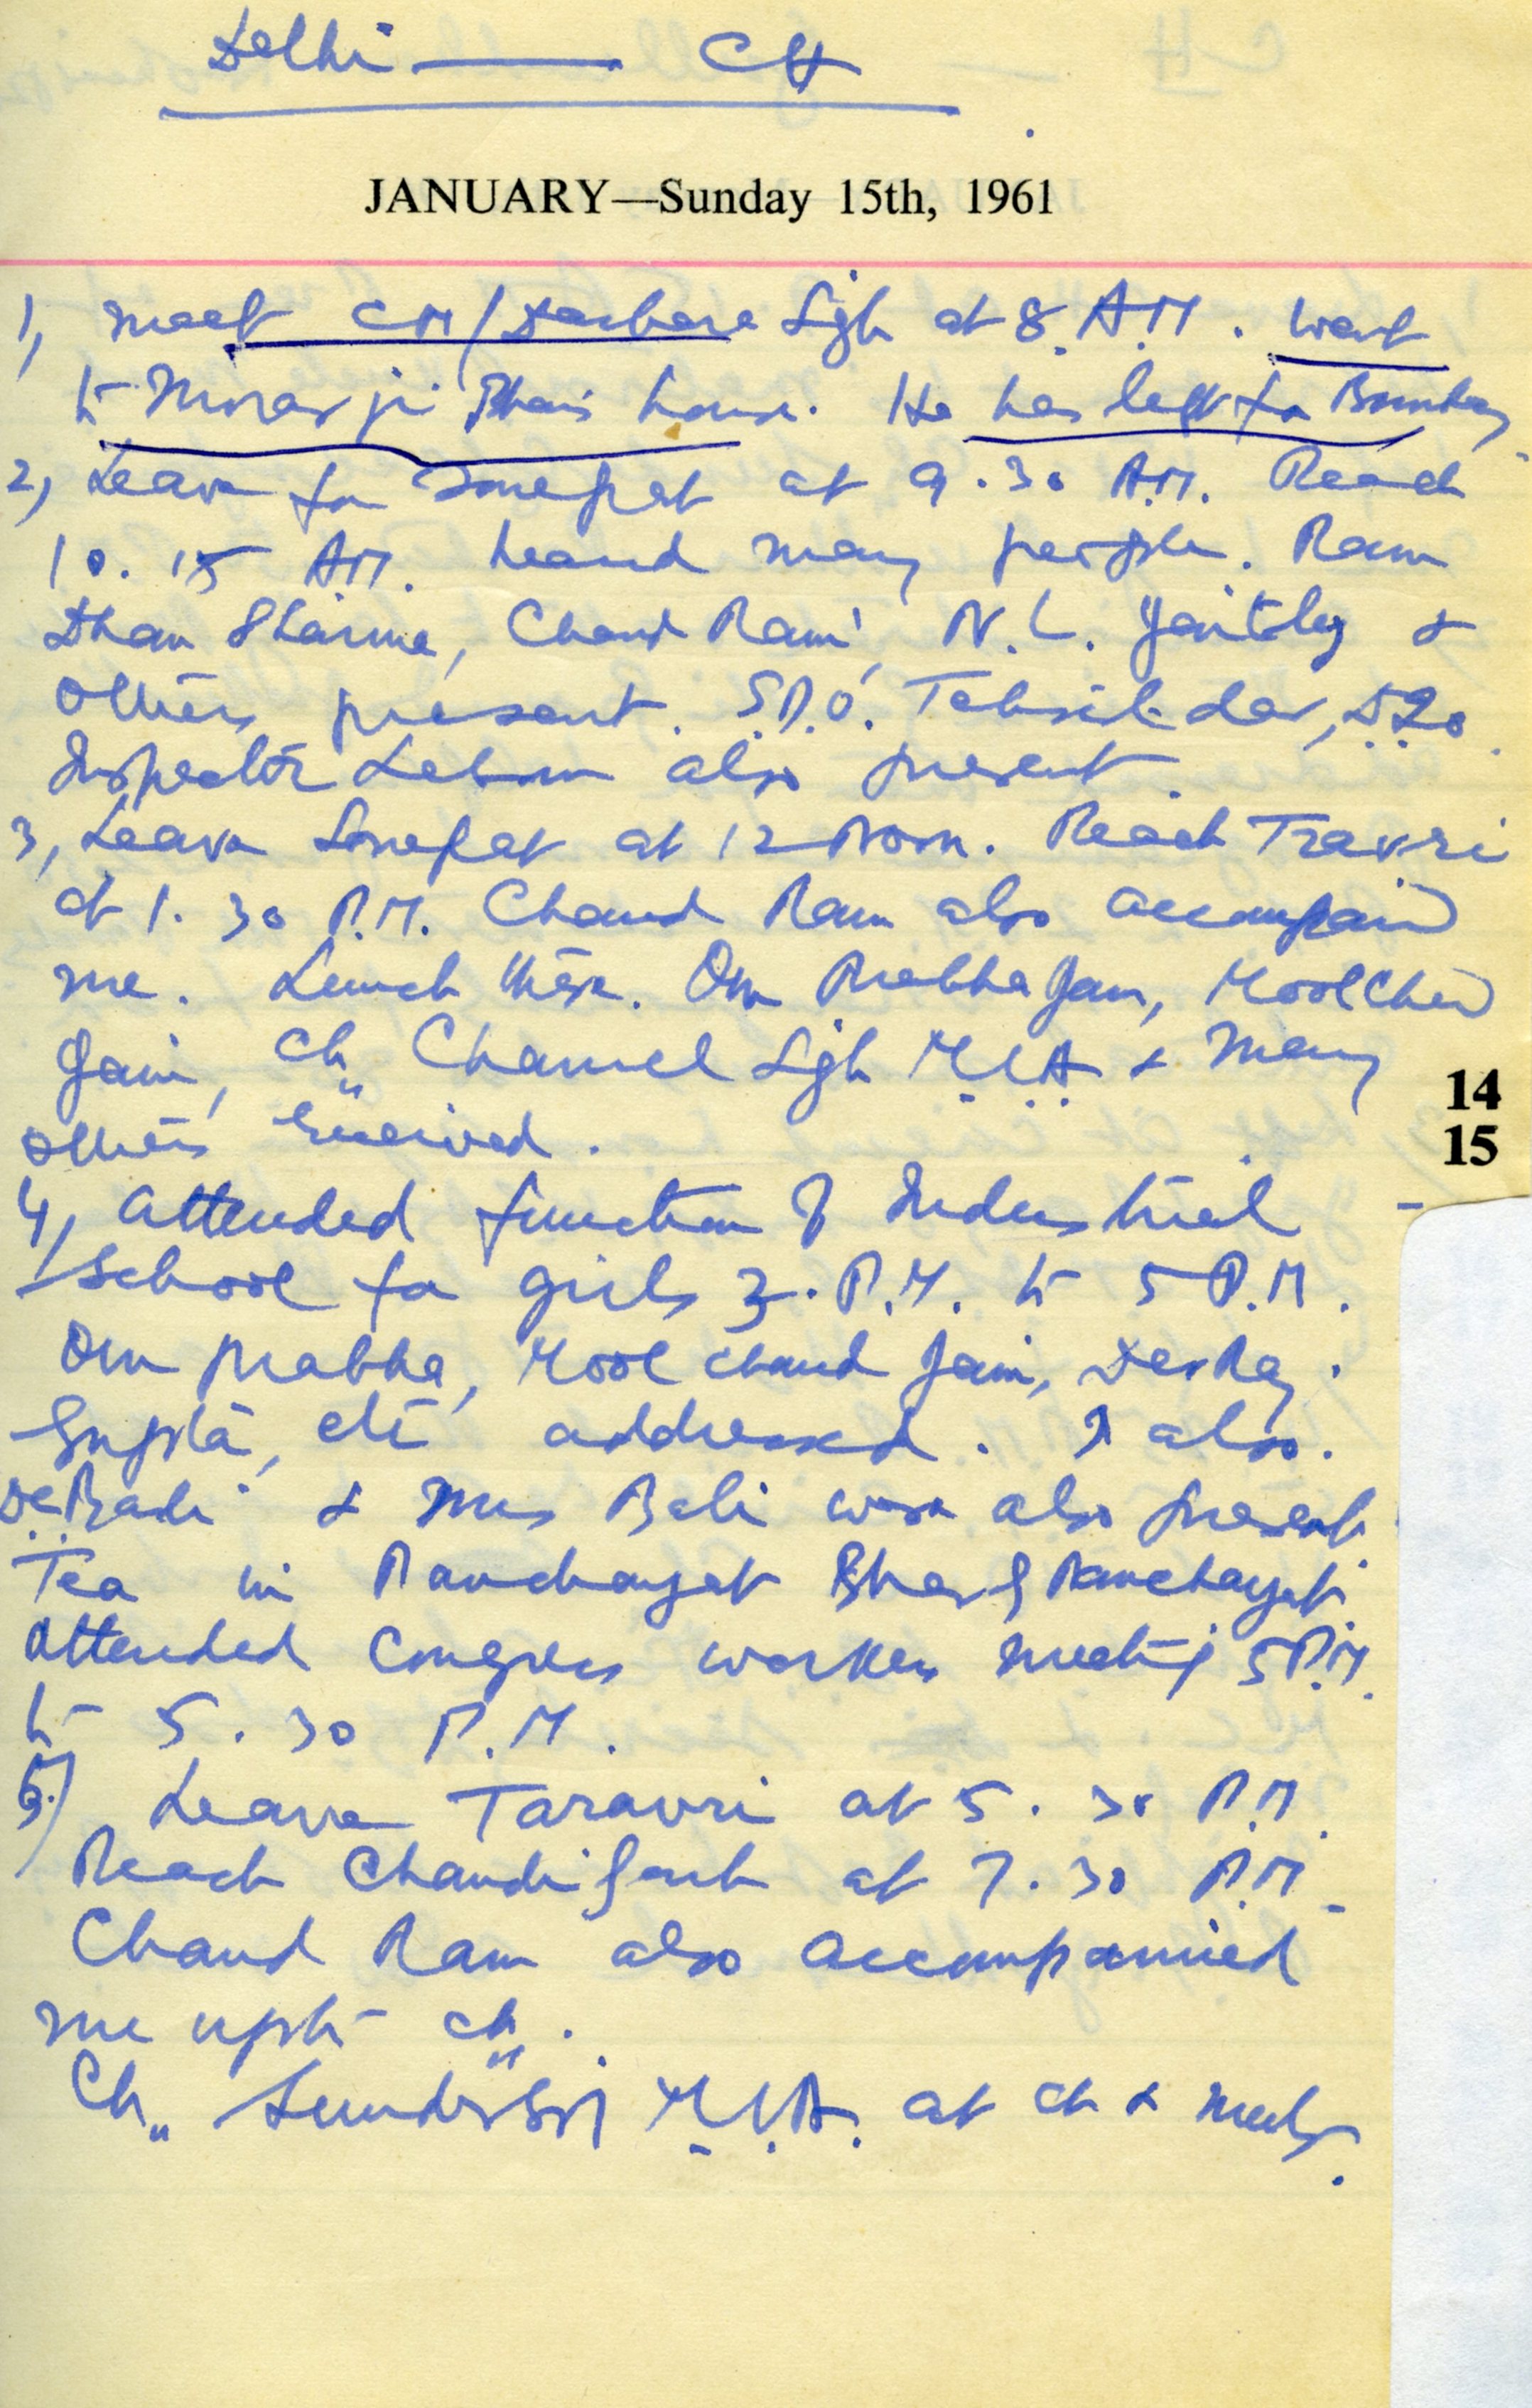 Delhi — CH
JANUARY—Sunday 15th, 1961
1, meet CM/Darbara Sgh at 8.A.M. Went
to Morarji Bhai's house. He has left for Bombay
2, Leave for Sonepat at 9.30 A.M. Reach
10.15 A.M. heard many people. Ram
Dhan Sharma, Chand Ram, N.L.
others present. S.D.O. Tehsildar,
Inspector also present
3, Leave Sonepat at 12 Noon. Reach Traori
at 1.30 P.M. Chand Ram also accompanied
me. Lunch there. Om Prabha Jain, Mool Chand
Jain, Ch" Sgh M.L.A & many
others received.
4, attended function of Industrial
School for girls 3.P.M. to 5 P.M.
Om Prabha, Mool Chand Jain, Des Raj
Gupta, etc addressed. I also.
& Mrs Bali were also present.
Tea in Panchayat Ghar of Panchayat.
attended Congress workers meeting 5 P.M.
to 5.30 P.M.
5) Leave Taraori at 5.30 P.M.
Reach Chandigarh at 7.30 P.M.
Chand Ram also accompanied
me upto ch".
Ch" M.L.A. at ch &
14
15